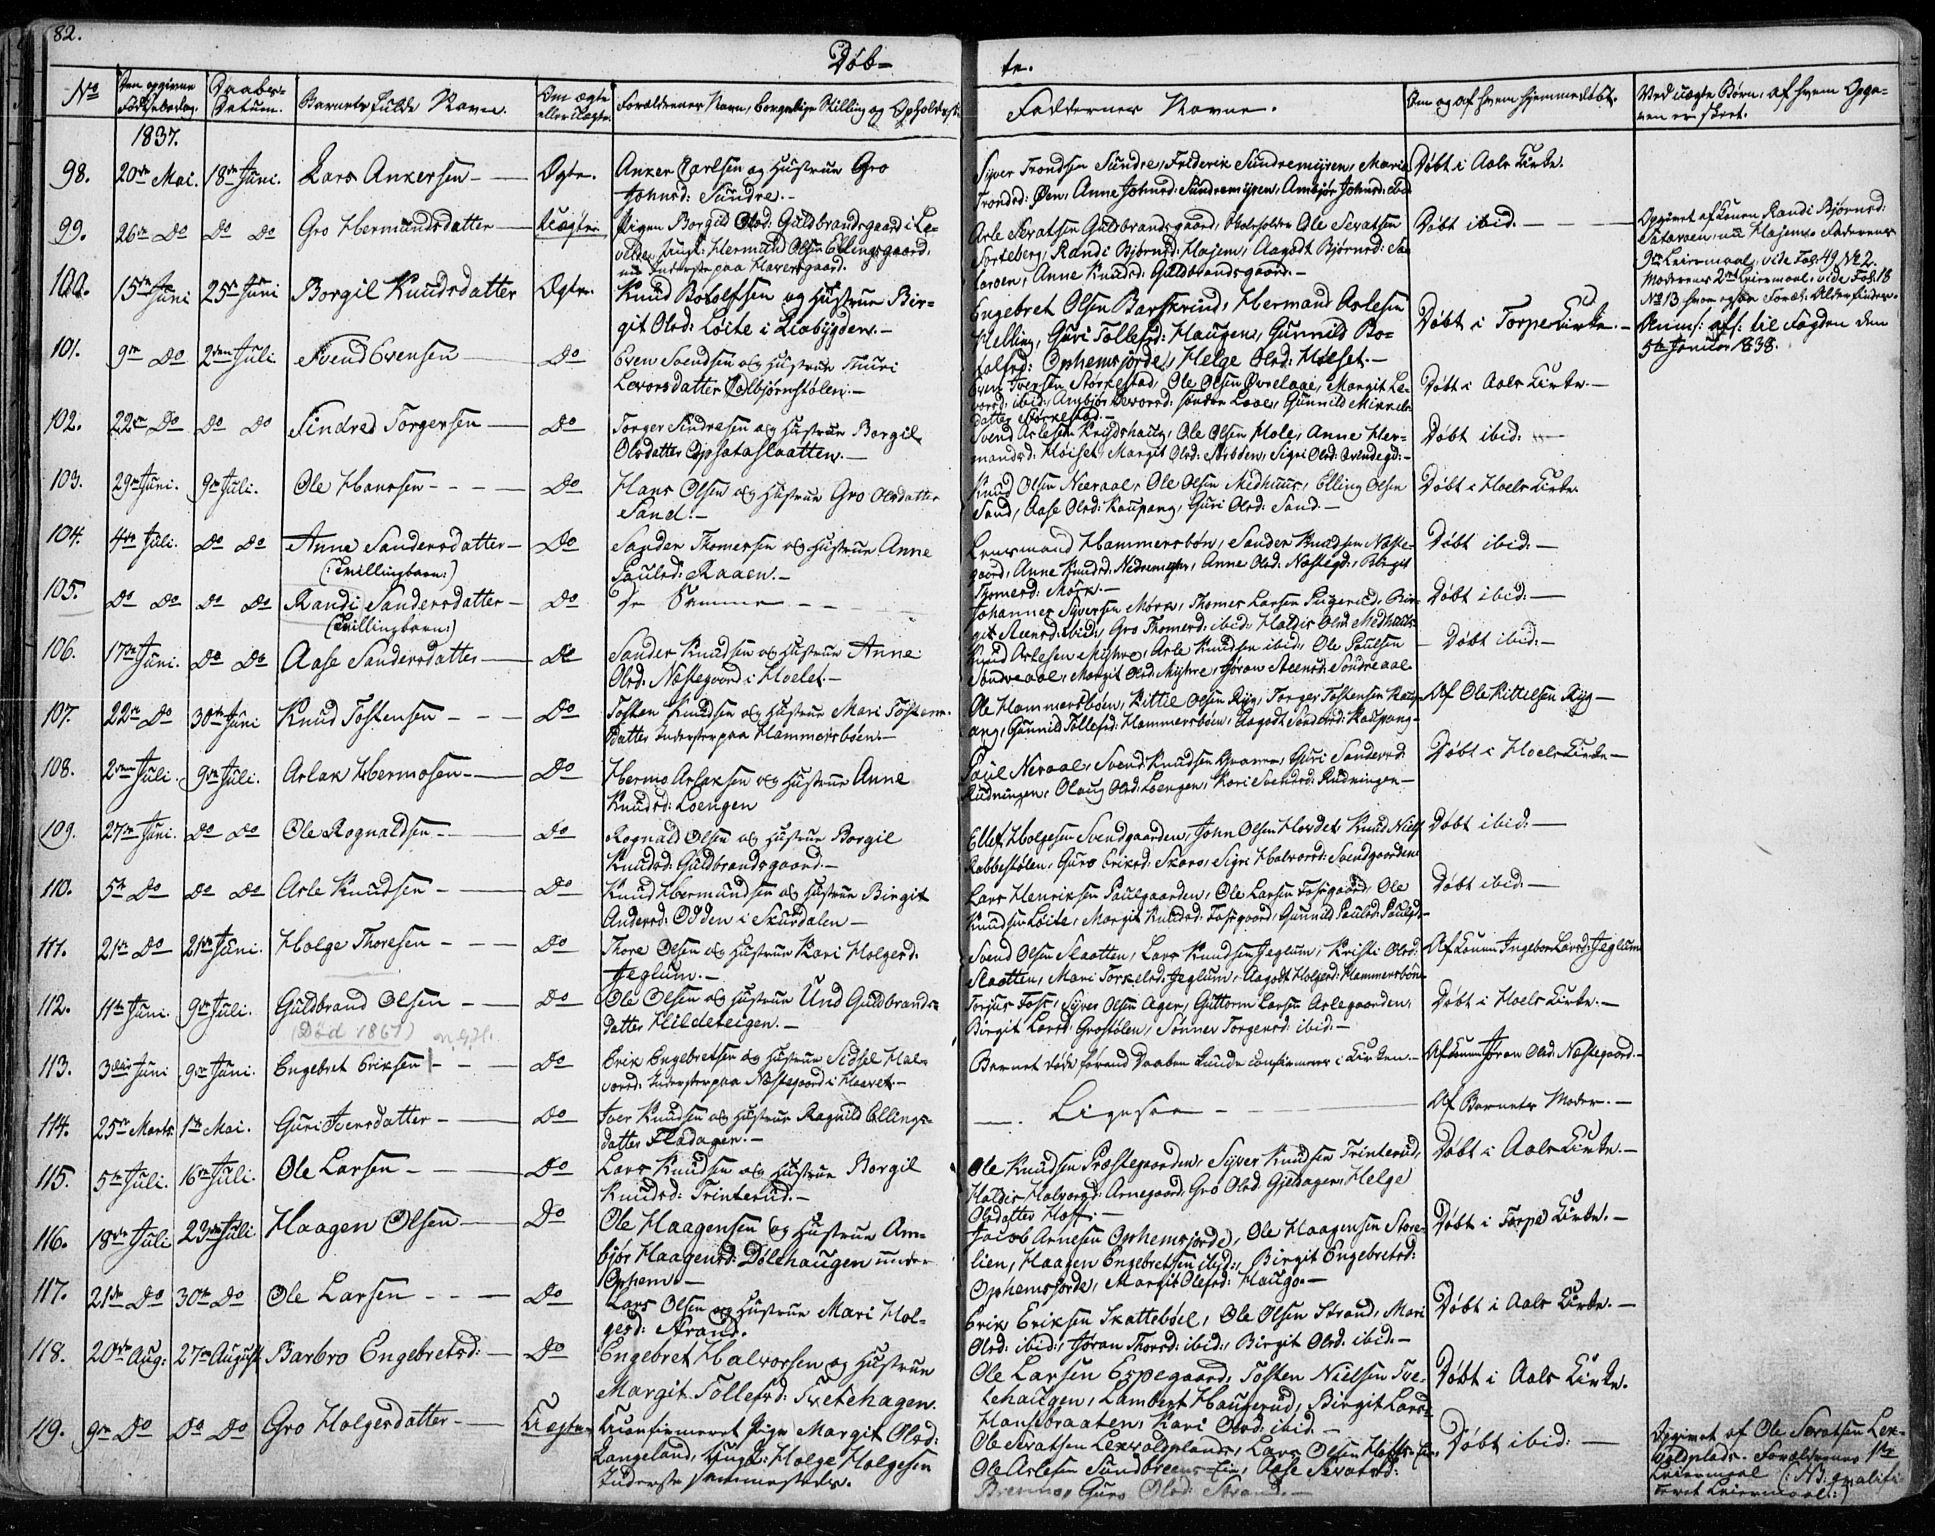 82.
Døb-
te.
No
Den opgivne Fødselsdag.
Daabs-Datum.
Barnets fulde Navn.
Om ægte eller Uægte.
Forældrenes Navn, borgerlige Stilling og Opholdsst:
Faddernes Navne.
Om og af hvem hjemmedøbt.
Ved uægte Børn, af hvem Opga-
ven er skeet.
1837.
98. 20de Mai. 18de Juni. Lars Ankersen Ægte. Anker Carlsen og Hustrue Gro
Johnsd: Sundre.
Syver Trondsen Sundre, Friderik Sundremyren, Marie
Trondsd: Øen, Anne Johnsd: Sundremyren, Ambjør Johnsd: ibid
Døbt i Aals Kirke.
99. 26de Do Do Do Gro Hermundsdatter Uægte. Pigen Borgild Olsd: Guldbrandsgaard i Le-
velden, Ungk: Hermund Olsen Ellingsgaard,
nu Inderste paa Haversgaard.
Asle Sevatsen Guldbrandsgaard, Skoleholder Ole Sevatsen
Sorteberg, Randi Bjørnsd: Hajem, Aagodt Bjørnsd: Sa-
taroen, Anne Knudsd: Guldbrandsgaard.
Døbt ibid.
Opgivet af Konen Randi Bjørnsd:
Sataroen, nu Hajem. Faderens
Leiermaal, vide Fol: 49 No 2.
Moderens 2det Leiermaal, vide Fol: 18
No 13 hvor ogsaa Foræld: Alder findes.
Anms: afs: til Fogden den
5te Januar 1838.
100. 15de Juni 25de Juni Borgil Knudsdatter Ægte. Knud Botolfsen og Hustrue Bir-
git Olsd: Løite i Liabygden.
Engebret Olsen Barskrind, Hermand Aslesen
Helling, Guri Tollefsd: Haugen, Gunnild Bo-
tolfsd: Ophemsjorde, Helge Olsd: Hølset.
Døbt i Torpe Kirke.
101. 9de Do 2den Juli Svend Evensen Do Even Svendsen og Hustrue Thuri
Levorsdatter Kolbjørnstølen.
Even Iversen Størkestad, Ole Olsen Øvrelaae, Margit Le-
vorsd: ibid, Ambjør Levorsd: Søndre Laae, Gunnild Mikkels
datter Størkestad.
Døbt i Aals Kirke.
102. 22de Do Do Do Sindred Torgersen Do Torger Sindresen og Hustrue Borgil
Olsdatter Opsataslaatten.
Svend Aslesen Krydshaug, Ole Olsen Hole, Anne Her-
mandsd: Høiset, Margit Olsd:
Døbt ibid:
103. 29de Juni. 9de Juli. Ole Hansen Do Hans Olsen og Hustrue Gro Olsdatter
Sand.
Knud Olsen Neraal, Ole Olsen Midhuus, Elling Olsen
Sand, Aase Olsd: Kaupang, Guri Olsd: Sand.
Døbt i Hoels Kirke
104. 4de Juli. Do Do Anne Sandersdatter Do Sander Thomesen og Hustrue Anne
(:Tvillingbarn:)
Paulsd: Raaen.
Lensmand Hammersbøn, Sander Knudsen Næste-
gaard, Anne Knudsd: Nedremyhre, Anne Olsd: Næstegd:, Birgit
Thomesd: Mørk.
Døbt ibid.
105. Do Do Do Do Randi Sandersdatter Do De Samme
(:Tvillingbarn:)
Johannes Syversen Mørk, Thomes Larsen Rugerud, Bir-
git Steensd: ibid, Gro Thomesd: ibid, Haldis Olsd: Midhuus.
Døbt ibid.
106. 17de Juni. Do Do Aase Sandersdatter Do Sander Knudsen og Hustrue Anne
Olsd: Næstegaard i Hoelet.
Knud Aslesen Myhre, Asle Knudsen ibid, Ole Paulsen
Søndreaal, Margit Olsd: Myhre, Jøran Steensd: Søndreaal
Døbt ibid.
107. 22de Do 30de Juni Knud Tostensen Do Tosten Knudsen og Hustrue Mari Tostens-
datter Inderster paa Hammersbøen.
Ole Hammersbøen, Kittil Olsen Ryg, Torger Tostensen Kaup-
ang, Gunnild Tollefsd: Hammersbøen, Aagodt Sandersd: Kaupang
Af Ole Kittelsen Ryg
108. 2den Juli. 9de Juli. Aslak Hermosen Do Hermo Aslaksen og Hustrue Anne
Knudsd: Løengen
Paul Neraal, Svend Knudsen Gram, Guri Sandersd:
Rudningen, Olaug Olsd: Løengen, Kari Svendsd: Rudningen
Døbt i Hoels Kirke
109. 27de Juni. Do Do Ole Rognaldsen Do Rognald Olsen og Hustrue Borgil
Knudsd: Guldbrandsgaard.
Ellef Holgesen Svendgaarden, John Olsen Hordet, Knud Niels
Rabbestølen, Guro Eriksd: Skaro, Sigri Halvorsd: Svendgaarden
Døbt ibid.
110. 5te Do Do Do Asle Knudsen Do Knud Hermundsen og Hustrue Birgit
Andersd: Odden i Skurdalen
Lars Henriksen Paulgaarden, Ole Larsen Fosgaard, Ole
Knudsen Løite, Margit Knudsd: Fosgaard, Gunnild Paulsd: Paulgd.
Døbt ibid.
111. 21de Do 21de Juni. Holge Thoresen Do Thore Olsen og Hustrue Kari Holgesd:
Jeglum.
Svend Olsen Slaatten, Lars Knudsen Jeglum, Kristi Olsd:
Slaatten, Mari Torkelsd: Jeglum, Aagodt Holgesd: Hammersbøn
Af Konen Ingebor Larsd: Jeglum
112. 11te Juni. 9de Juli. Guldbrand Olsen Do Ole Olsen og Hustrue Und Guldbrands-
(Død 1861)
datter Hildeteigen.
Torjus Foss, Syver Olsen Ager, Guttorm Larsen Aslegaarden,
Birgit Larsd: Grostølen, Sønnev Torgersd: ibid.
Døbt i Hoels Kirke.
113. 3die Juni 9de Juni. Engebret Eriksen Do Erik Engebretsen og Hustrue Sidsel Hal-
vorsd: Inderster paa Næstegaard i Haavet.
Barnet døde førend Daaben kunde confirmeres i Kirken.
Af Konen Jøran Olsd: Næstegaard.
114. 25de Marts 1te Mai. Guri Iversdatter Do Iver Knudsen og Hustrue Ragnild Ellings-
datter Flødagen.
Ligesaa
Af Barnets Moder.
115. 5te Juli. 16de Juli. Ole Larsen Do Lars Knudsen og Hustrue Borgil
Knudsd: Trinterud.
Ole Knudsen Præstegaarden, Syver Knudsen Trinterud,
Haldis Halvorsd: Arnegaard, Gro Olsd: Gjeldagen, Helge
Olsdatter Hoff.
Døbt i Aals Kirke.
116. 18de Juli 23de Juli Haagen Olsen Do Ole Haagensen og Hustrue Am-
bjør Haagensd: Dølehaugen under
Ophem.
Jacob Arnesen Ophemsjorde, Ole Haagensen Store-
lien, Haagen Engebretsen ibid:, Birgit Engebretsd:
Ophemsjorde, Margit Olefsd: Haugo.
Døbt i Torpe Kirke.
117. 21de Do 30te Do Ole Larsen Do Lars Olsen og Hustrue Mari Hol-
gesd: Strand.
Erik Eriksen Skattebøel, Ole Olsen Strand, Mari
Olsd: ibid:, Jøran Thorsd: ibid:, Birgit Olsd: ibid.
Døbt i Aals Kirke.
118. 20de Aug: 27de August Barbro Engebretsd: Do Engebret Halvorsen og Hustrue
Margit Tollefsd: Tvetehagen.
Ole Larsen Espegaard, Tosten Nielsen Tve-
tehaugen, Lambert Haugerud, Birgit Larsd:
Hansebraaten, Kari Olsd: ibid.
Døbt i Aals Kirke.
119. 9de Do Do Do Gro Holgersdatter Uægte Uconfirmeret Pige Margit Olsd:
Langeland, Ungk: Holge Holgesen
Inderste sammesteds.
Ole Sevatsen Lexvoldsplads, Lars Olsen Hoffs-Eie,
Ole Aslesen Sundbreens-Eie, Aase Sevatsd:
Brenno, Guro Olsd: Strand.
Døbt ibid:
Opgivet af Ole Sevatsen Lex-
voldplads. Forældrenes 1ste
Leiermaal (:NB: qvalifi-
ceret Leiermaal:)